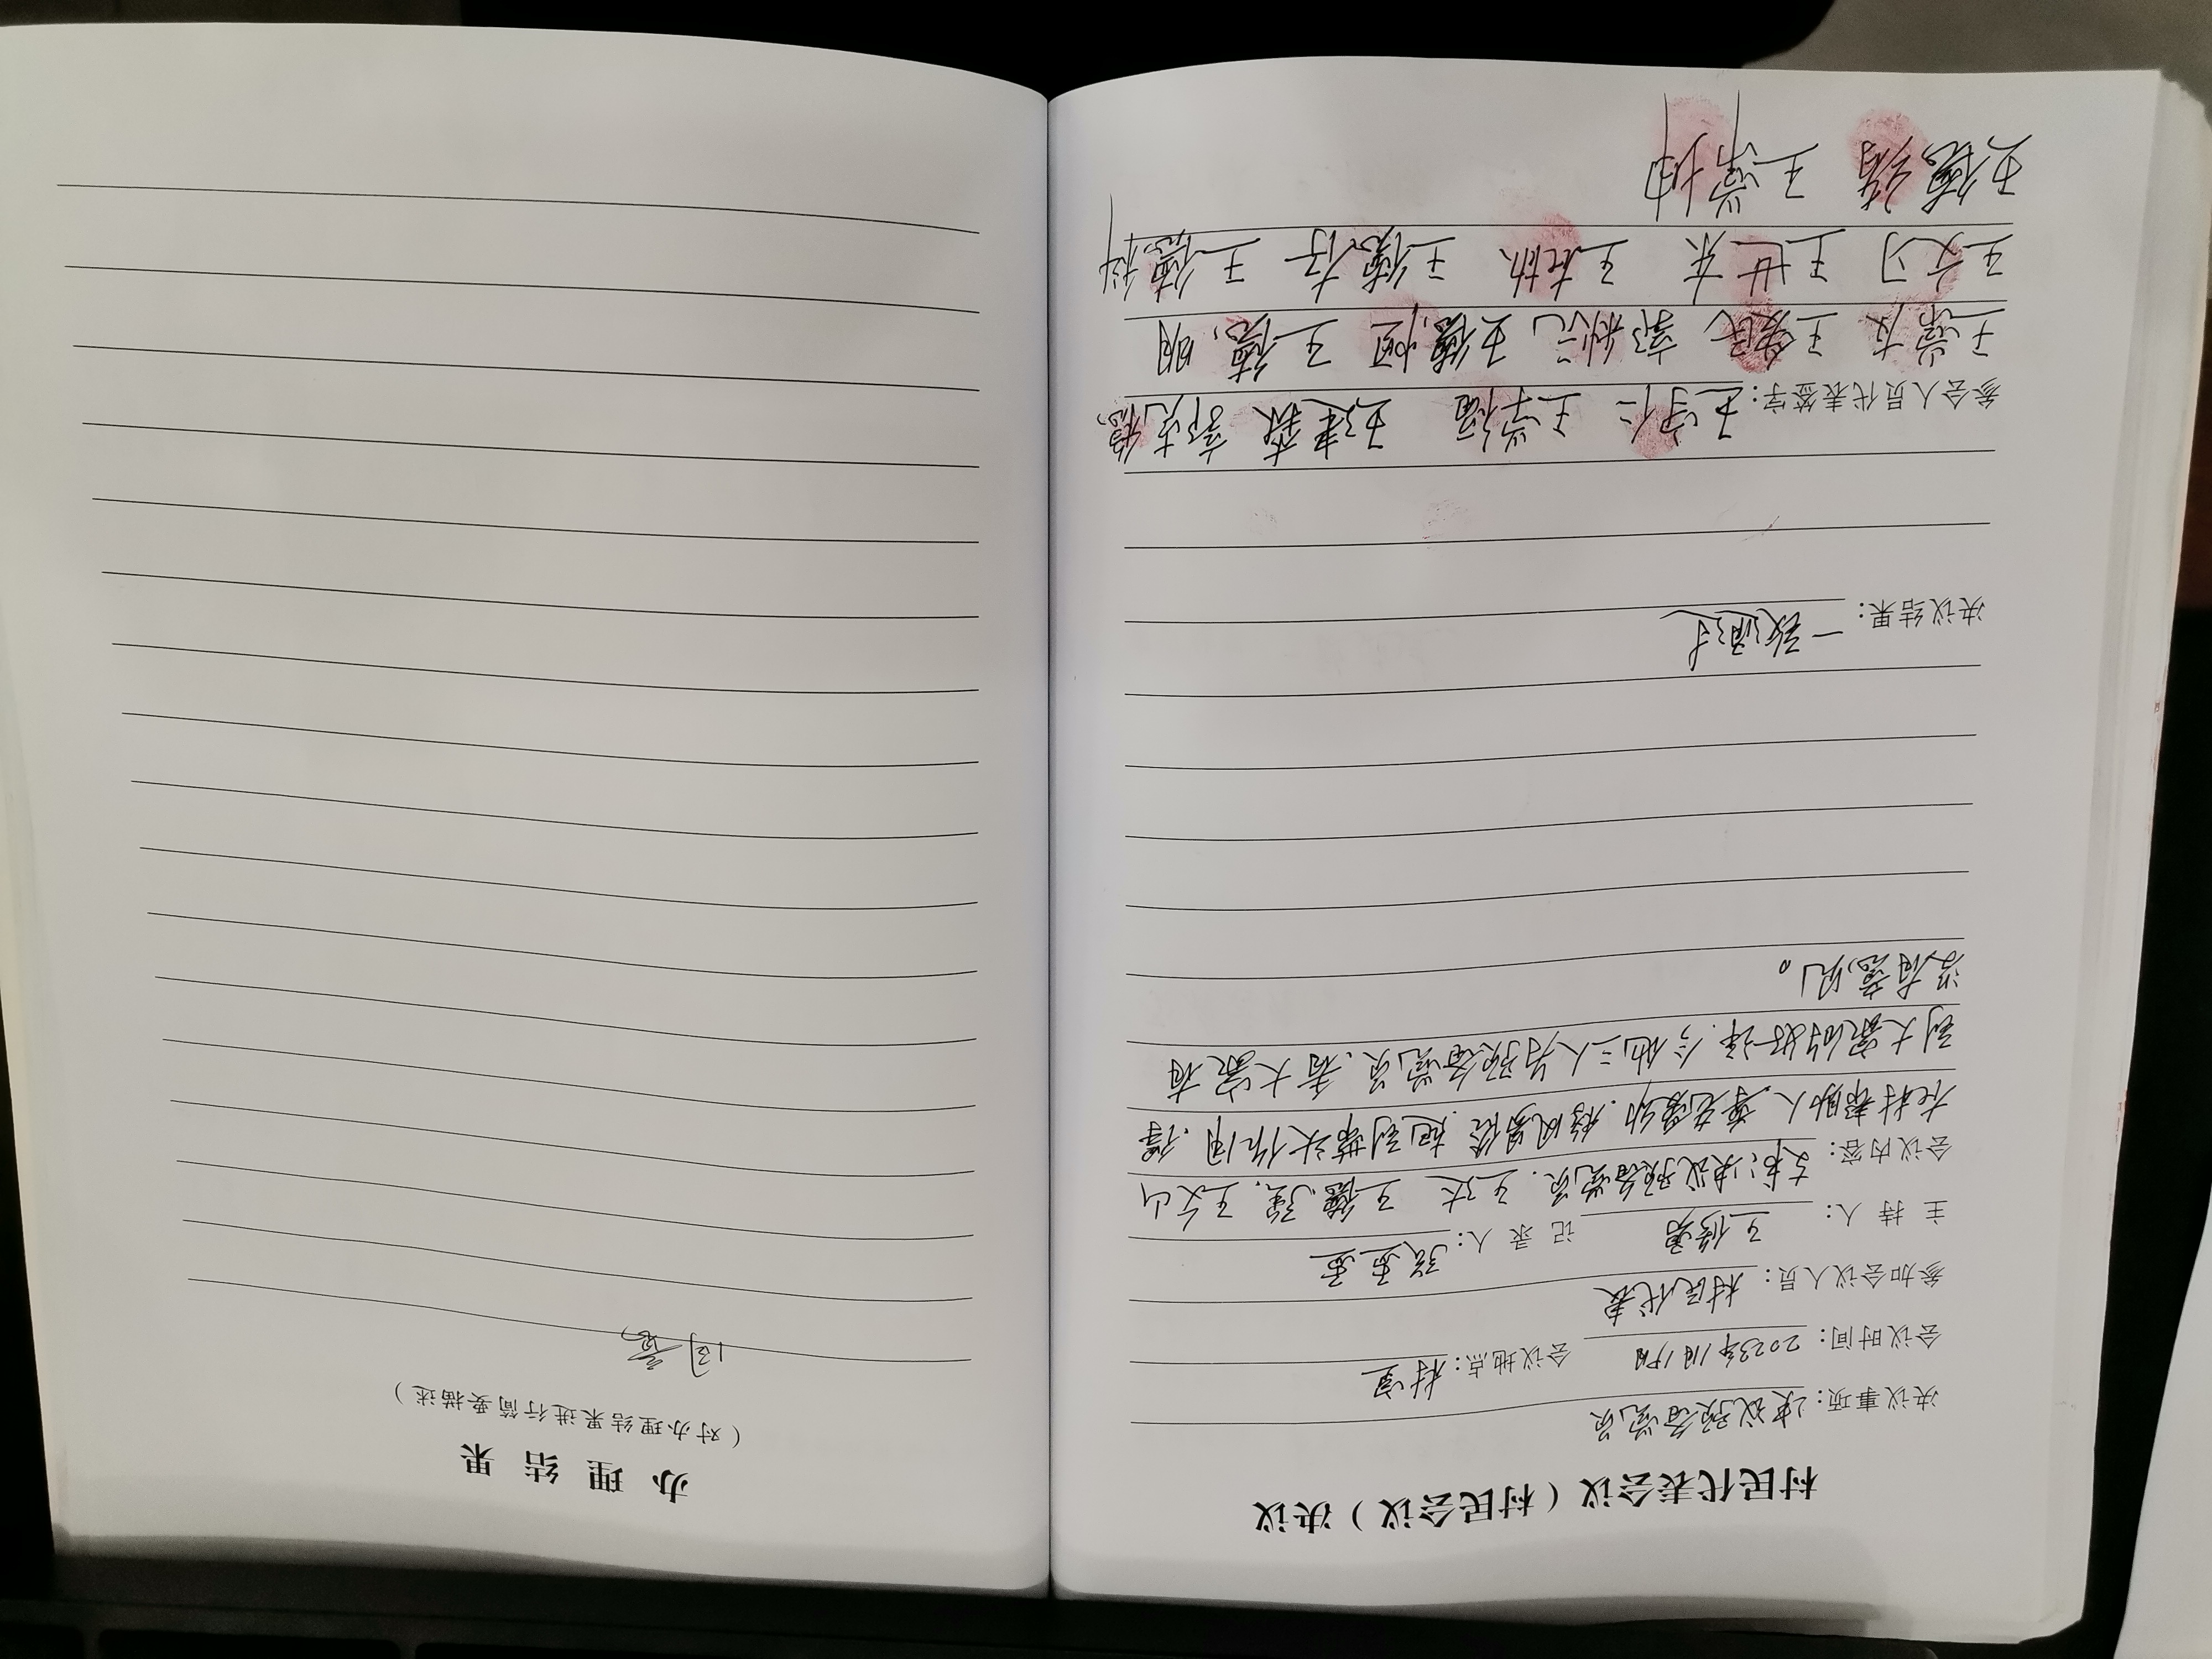 村民代表会议（村民会议）决议
决议事项：决议预备党员
会议时间：2023年1月19日 会议地点：村室
参加会议人员：村民代表
主持人：王修勇 记录人：张孟孟
会议内容：支书：决议预备党员．王达 王德强．王文山
在村帮助人．尊老爱幼．移风易俗．起到带头作用．得
到大家的好评．今他三人为预备党员．看大家有
没有意见。
决议结果：一致通过
参会人员代表签字：王守仁 王学福 王建森 郭克稳
王常友 王爱民 郭秋元 王德恒 王德明
王文习 王世东 王在 王德存 王德科
王德绪 王常坤
办理结果
（对办理结果进行简要描述）
同意